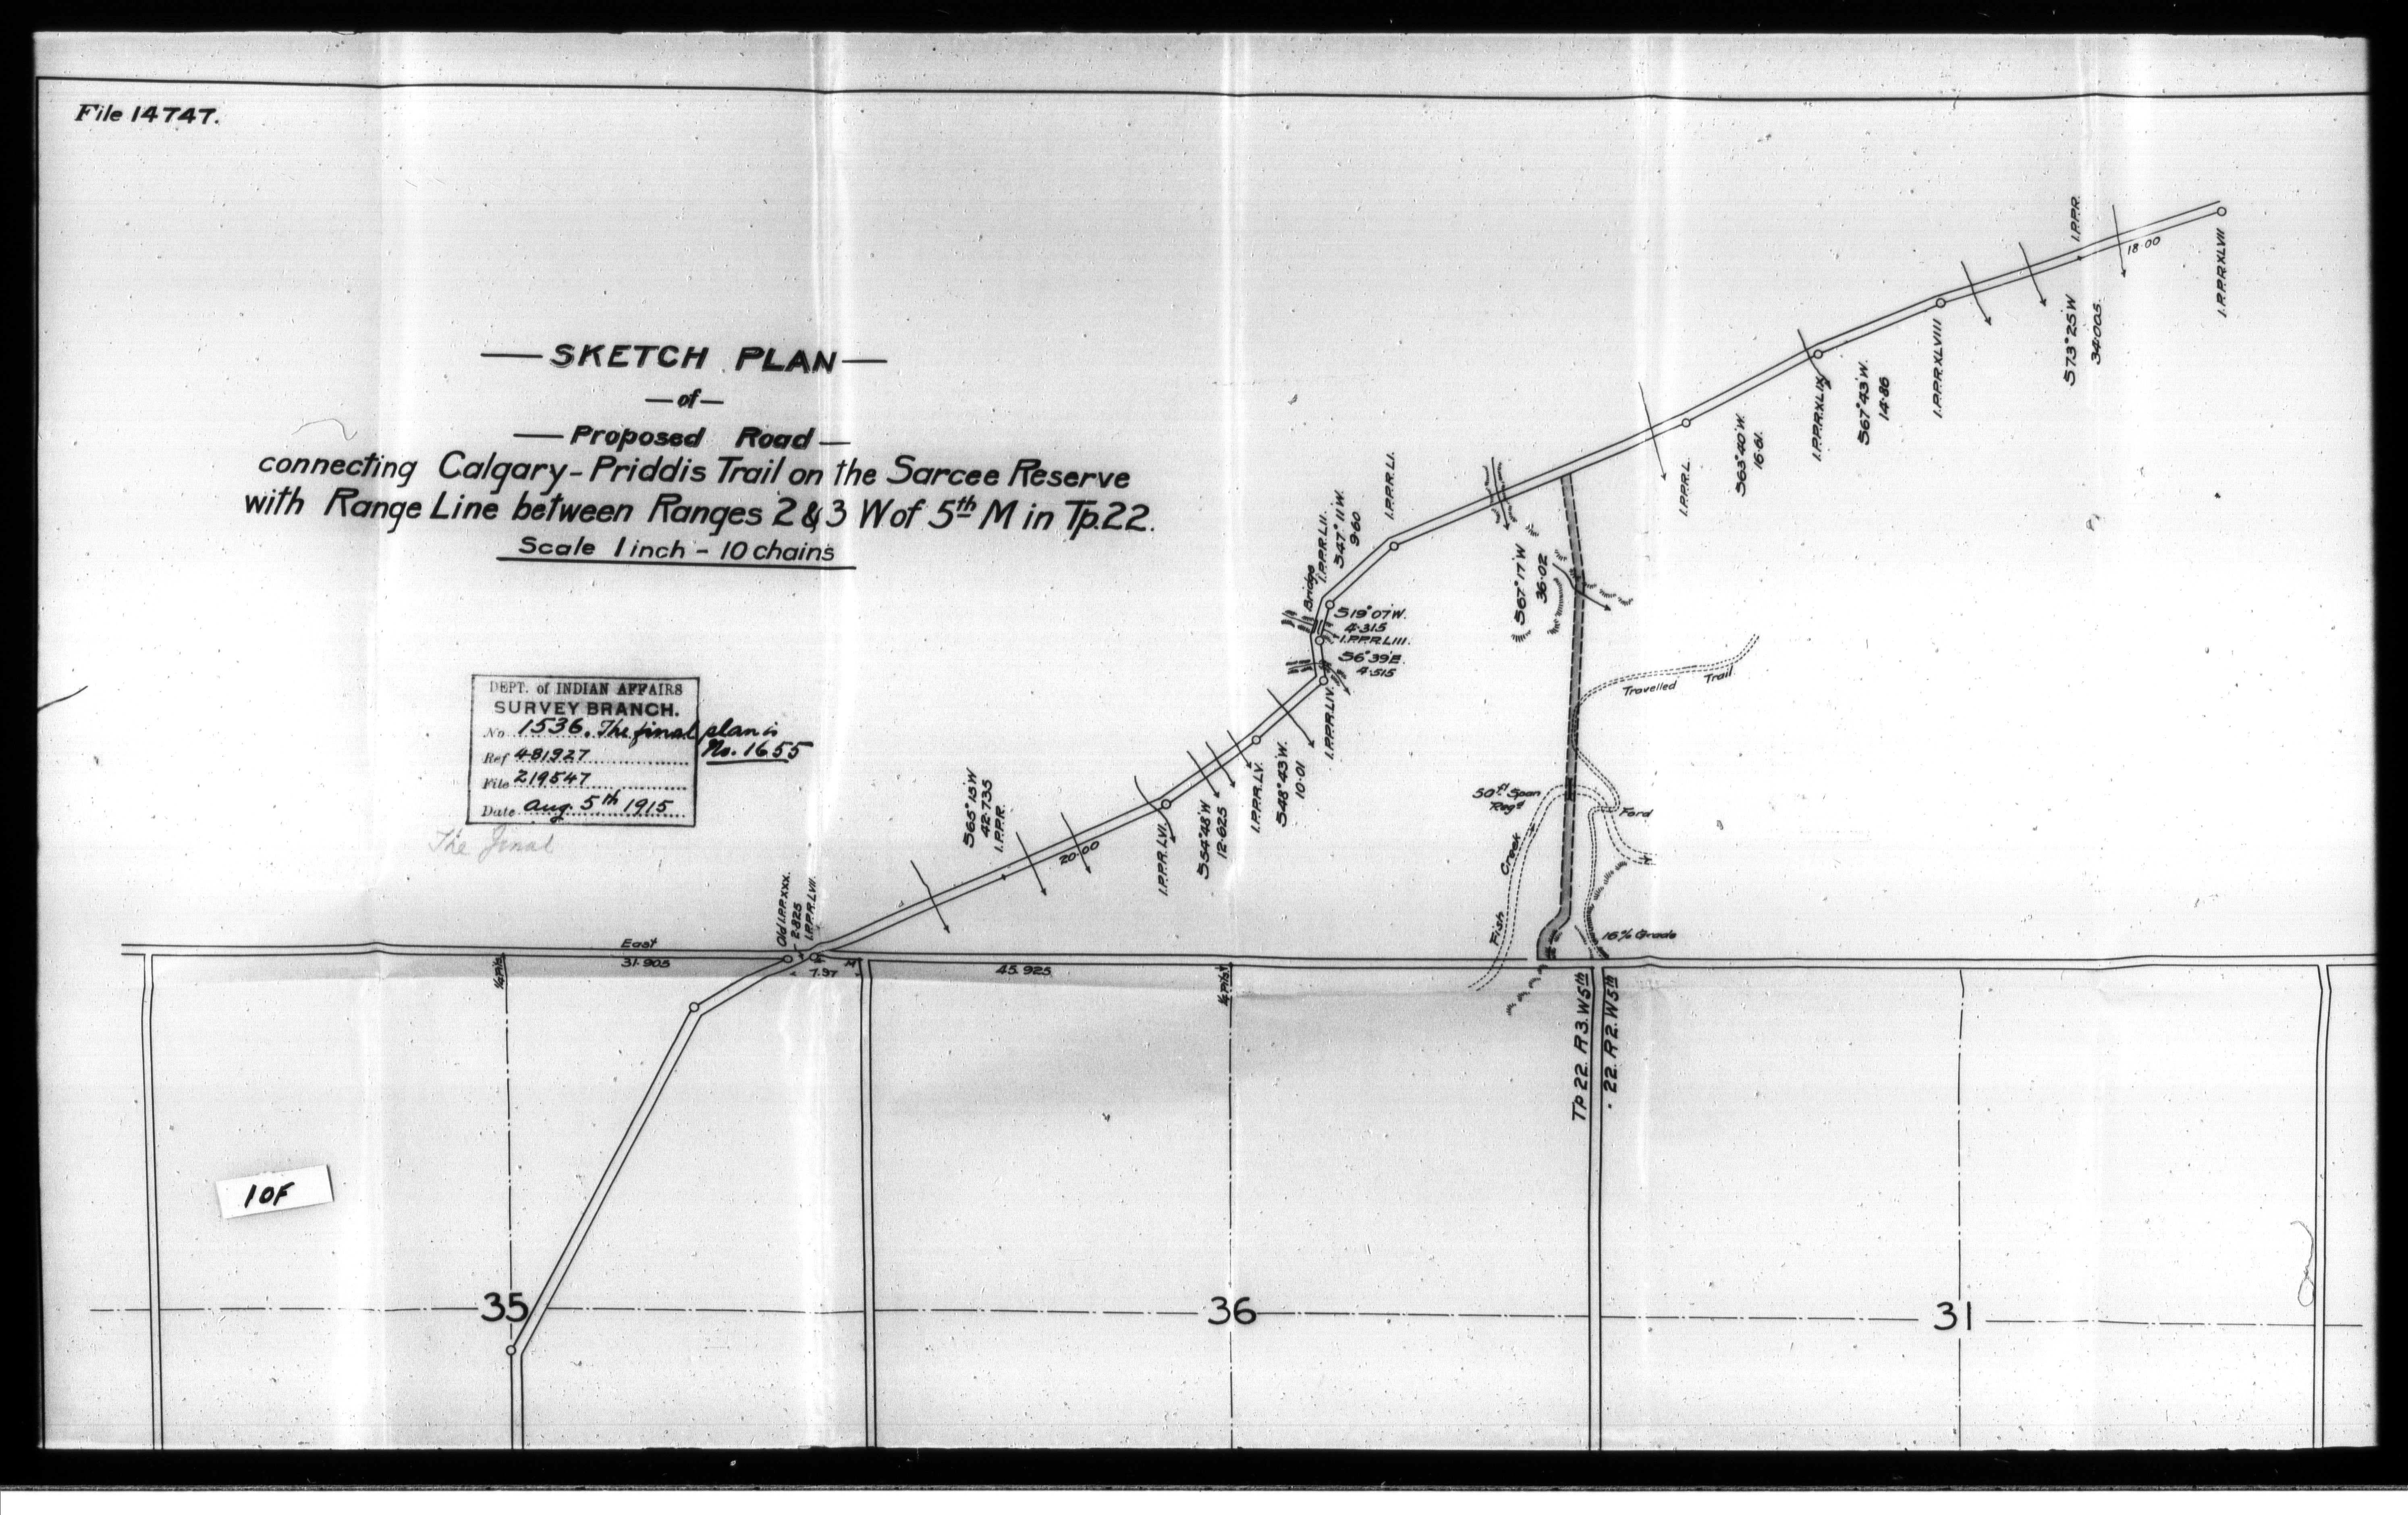 File 14747.
SKETCH PLAN
of
Proposed Road
connecting Calgary-Priddis Trail on the Sarcee Reserve
with Range Line between Ranges 2 & 3 W of 5th M in Tp. 22.
Scale 1 inch - 10 chains
DEPT. of INDIAN AFFAIRS
SURVEY BRANCH.
No 1536. The final plan is
No. 1655
Ref 481927
File 219547
Date Aug. 5th 1915
The final
I.P.P.R. XLVII
18.00
I.P.P.R.
S73° 25'W
34.005
I.P.P.R. XLVIII
S67° 43'W.
14.86
I.P.P.R. XLIX
S63° 40'W.
16.61
I.P.P.R. L.
S67° 17'W
36.02
I.P.P.R. LI.
S47° 11'W.
9.60
I.P.P.R. LII.
Bridge
S19° 07'W.
4.315
I.P.P.R. LIII.
S6° 39'E.
4.515
I.P.P.R. LIV.
S48° 43'W.
10.01
I.P.P.R. LV.
S54° 48'W
12.625
I.P.P.R. LVI.
20.00
S65° 15'W
42.735
I.P.P.R.
I.P.P.R. LVII.
2.825
Old I.P.P. XXX.
Travelled Trail
50 ft Span
Reqd
Ford
Fish Creek
16% Grade
East
31.905
7.97
M
45.925
Tp 22. R 3. W5th
" 22. R 2. W5th
10F
35
36
31